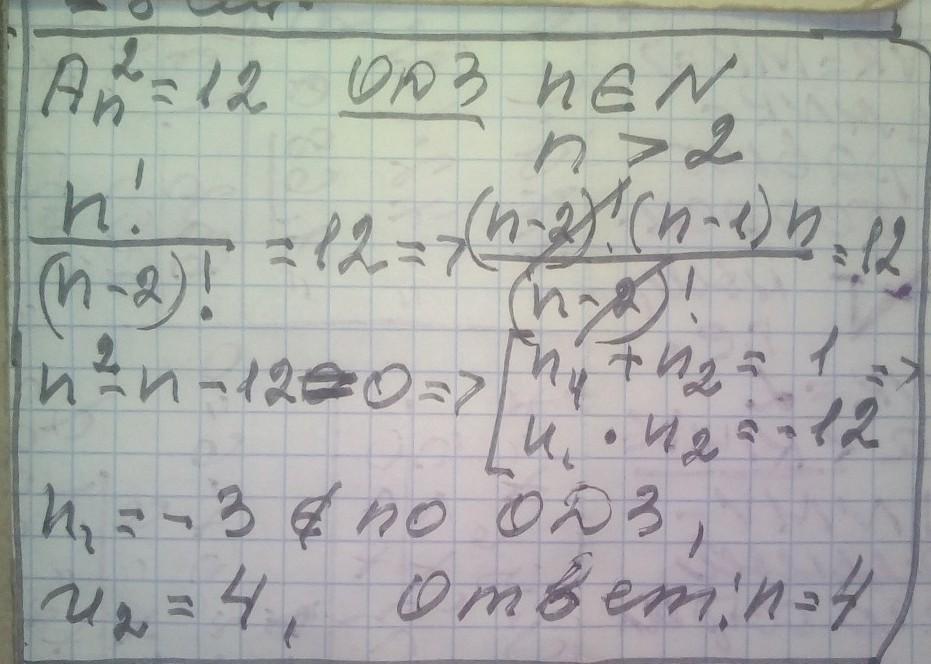 Aₙ² = 12 ОДЗ n ∈ N
n > 2
n! / (n-2)! = 12 => (n-2)! (n-1) n / (n-2)! = 12
n² - n - 12 = 0 => [ n₁ + n₂ = 1 =>
n₁ · n₂ = -12
n₁ = -3 ∉ по ОДЗ,
n₂ = 4, Ответ: n = 4